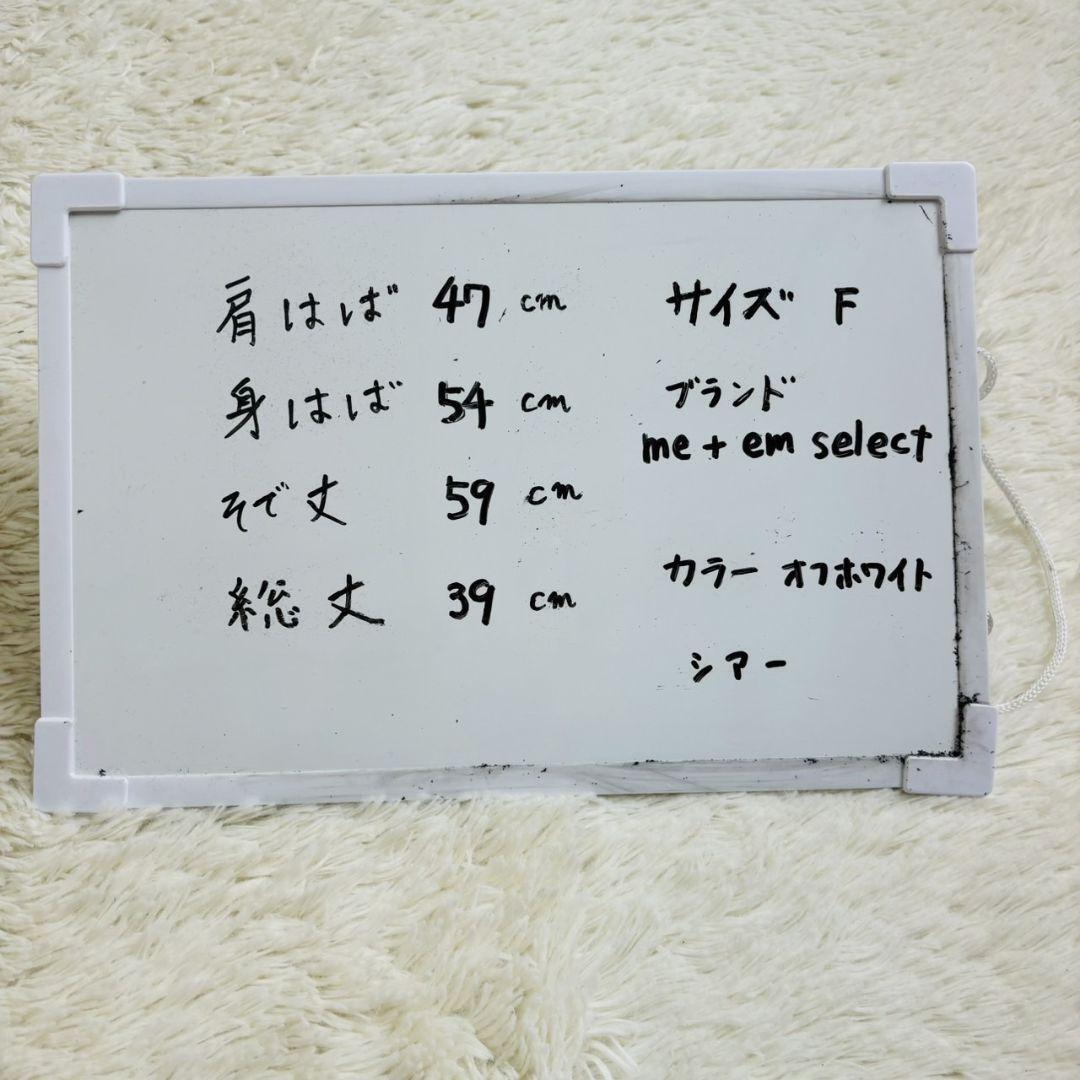 肩はば 47 cm
身はば 54 cm
そで丈 59 cm
総丈 39 cm
サイズ F
ブランド
me + em select
カラー オフホワイト
シアー